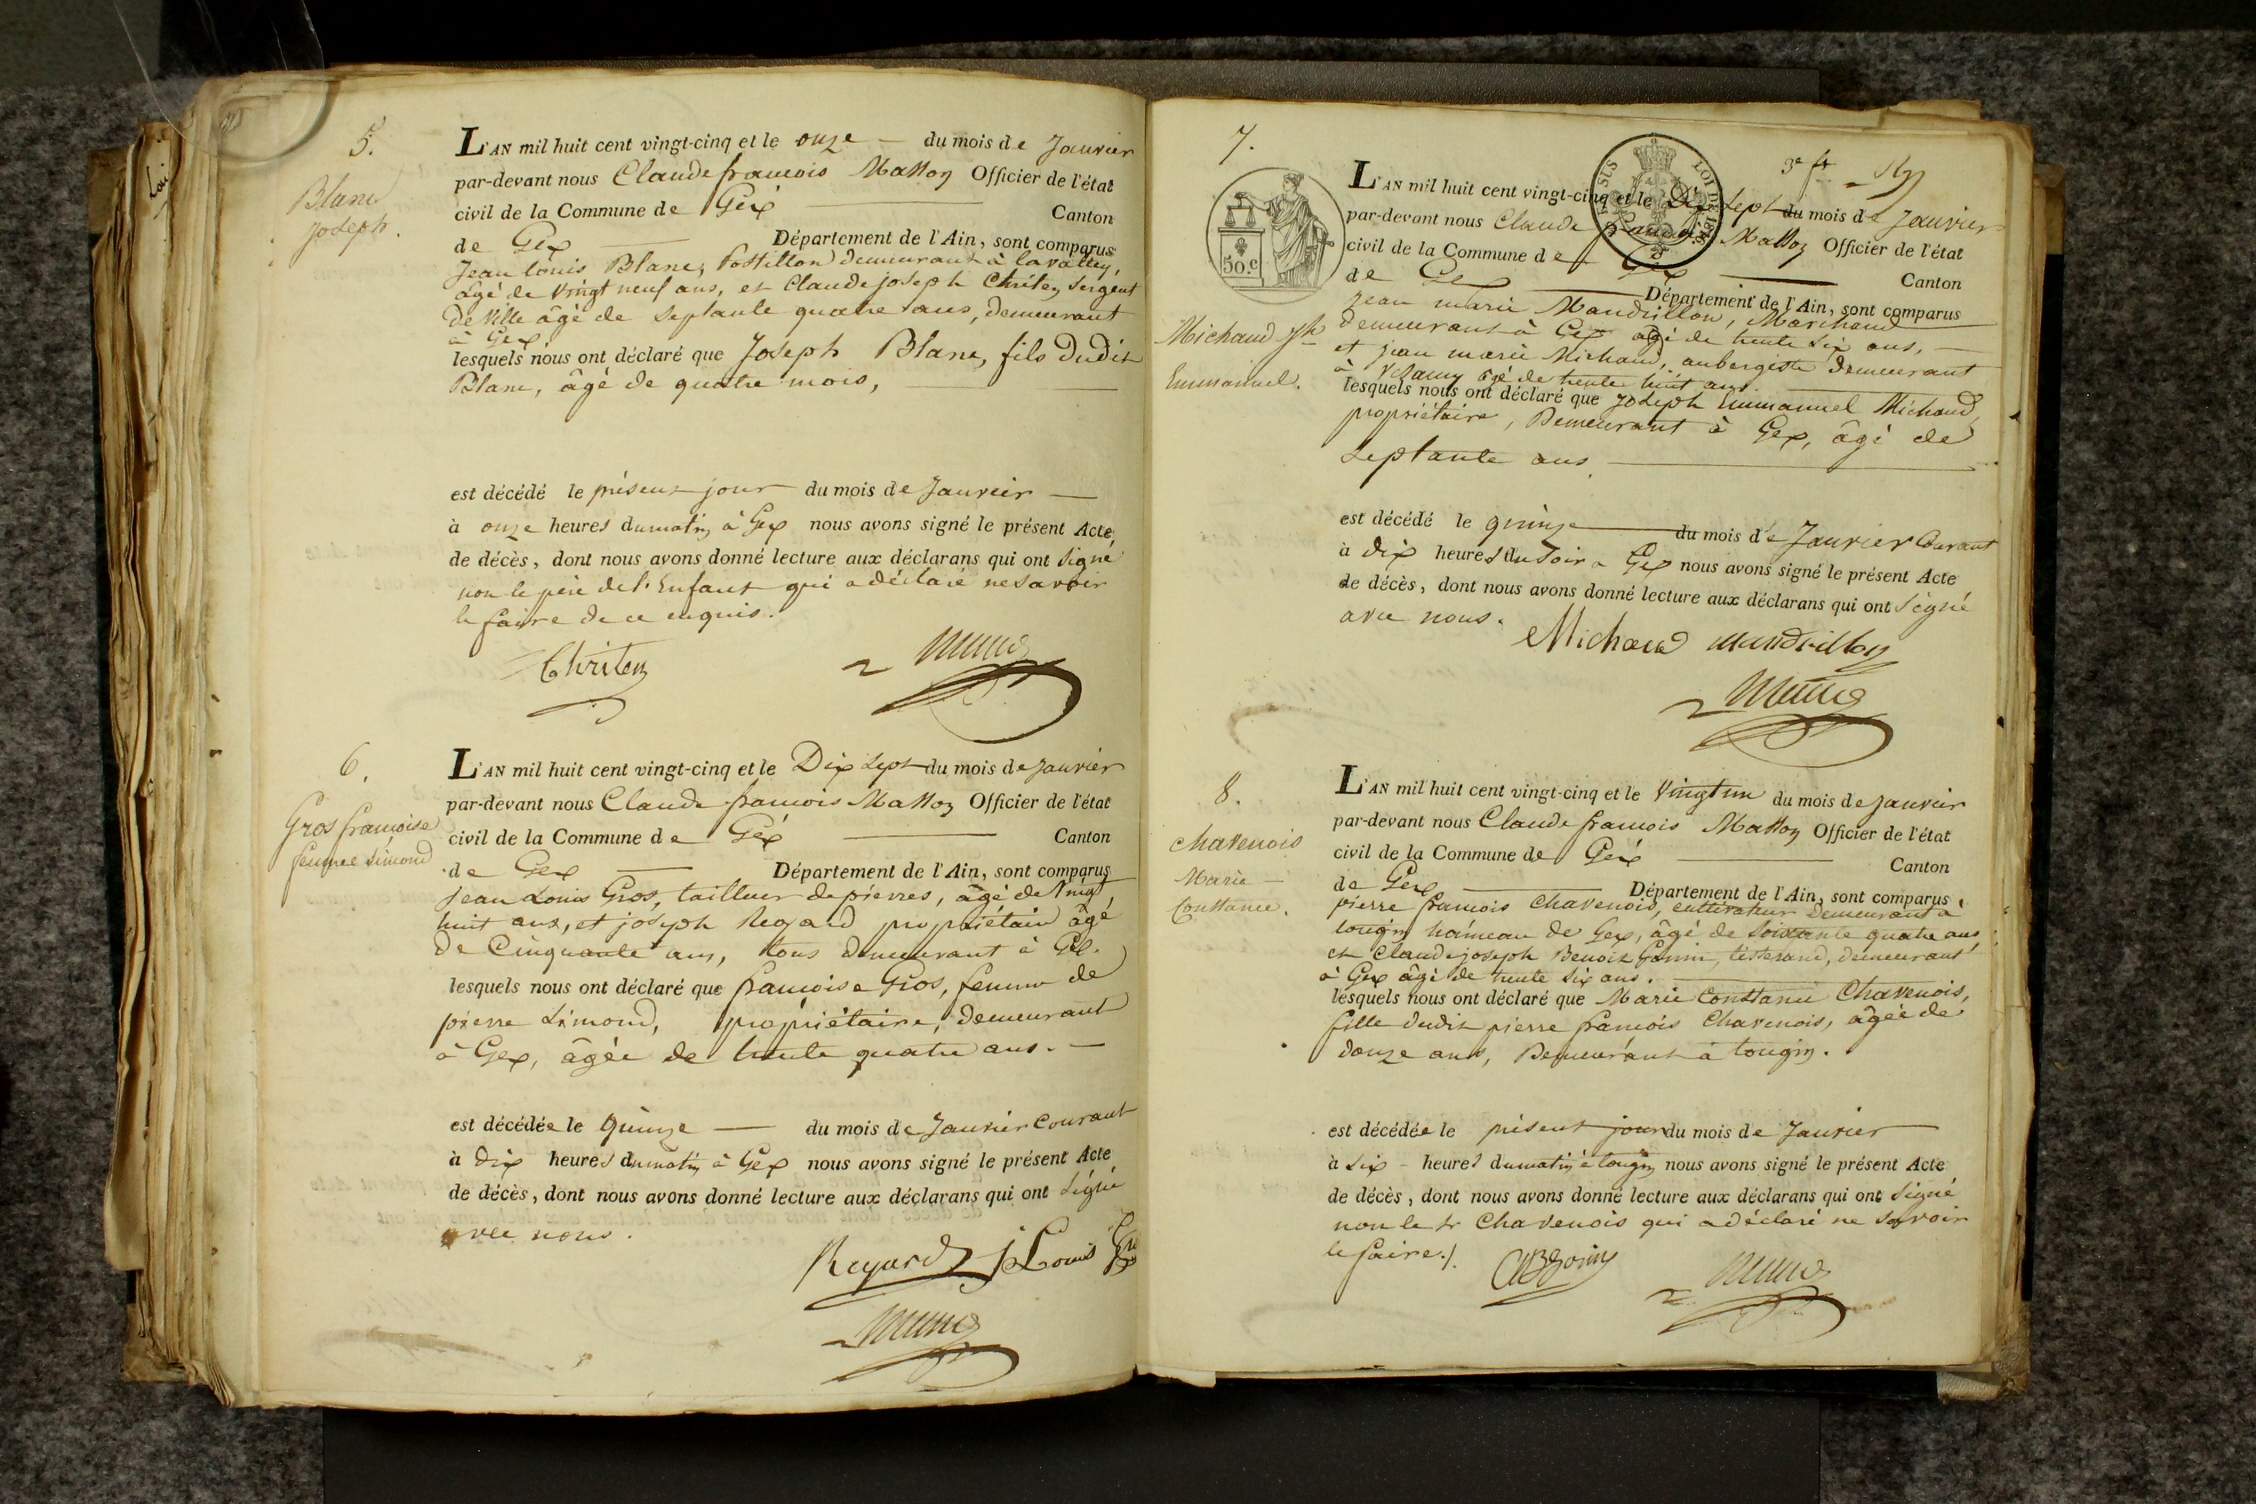 5.
Blanc
Joseph.
L'AN mil huit cent vingt-cinq et le onze — du mois de Janvier
par-devant nous Claude francois Matton Officier de l'état
civil de la Commune de Gex Canton
de Gex Département de l'Ain, sont comparus
Jean Louis Blanc, Postillon demeurant à lavattay,
âgé de vingt neuf ans, et Claude joseph Chriten Sergent
de Ville âgé de Septante quatre ans, demeurant
à Gex
lesquels nous ont déclaré que Joseph Blanc, fils dudit
Blanc, âgé de quatre mois,
est décédé le présent jour du mois de Janvier —
à onze heures du matin à Gex nous avons signé le présent Acte
de décès, dont nous avons donné lecture aux déclarans qui ont signé
non le père de l'Enfant qui a déclaré ne savoir
le faire de ce enquis.
Chriten
6.
Gros françoise
femme Limond
L'AN mil huit cent vingt-cinq et le Dix Sept du mois de Janvier
par-devant nous Claude francois Matton Officier de l'état
civil de la Commune de Gex Canton
de Gex Département de l'Ain, sont comparus
Jean Louis Gros, tailleur de pierres, âgé de Vingt
huit ans, et joseph Regard propriétaire âgé
de Cinquante ans, tous demeurant à Gex.
lesquels nous ont déclaré que francoise Gros, femme de
pierre Limond, propriétaire, demeurant
à Gex, âgée de trente quatre ans. —
est décédée le quinze — du mois de Janvier Courant
à Dix heures du matin à Gex nous avons signé le présent Acte
de décès, dont nous avons donné lecture aux déclarans qui ont Signé
avec nous.
Regard J Louis Gros
7.
Michaud Jph
Emmanuel.
50.c
LOI DE 1816
3e ft
L'AN mil huit cent vingt-cinq et le Dix Sept du mois de Janvier
par-devant nous Claude francois Matton Officier de l'état
civil de la Commune de Gex Canton
de Gex Département de l'Ain, sont comparus
Jean marie Mandrillon, Marchand
demeurant à Gex âgé de trente six ans, —
et jean marie Michaud, aubergiste demeurant
à âgé de trente huit ans.
lesquels nous ont déclaré que Joseph Emmanuel Michaud,
propriétaire, Demeurant à Gex, âgé de
Septante ans
est décédé le quinze du mois de Janvier Courant
à Dix heures du Soir à Gex nous avons signé le présent Acte
de décès, dont nous avons donné lecture aux déclarans qui ont Signé
avec nous.
Michaud mandrillon
8.
Chavenois
Marie —
Constance.
L'AN mil huit cent vingt-cinq et le Vingt un du mois de Janvier
par-devant nous Claude francois Matton Officier de l'état
civil de la Commune de Gex Canton
de Gex Département de l'Ain, sont comparus
pierre francois Chavenois, cultivateur Demeurant à
tougin hameau de Gex, âgé de Soixante quatre ans
et Claude joseph Benoit Gonin, tisserand, demeurant
à Gex âgé de trente Six ans.
lesquels nous ont déclaré que Marie Constance Chavenois,
fille dudit pierre francois Chavenois, âgée de
douze ans, Demeurant à tougin.
est décédée le présent jour du mois de Janvier
à Six - heures du matin à tougin nous avons signé le présent Acte
de décès, dont nous avons donné lecture aux déclarans qui ont Signé
non le Sr Chavenois qui a déclaré ne Savoir
le faire./.